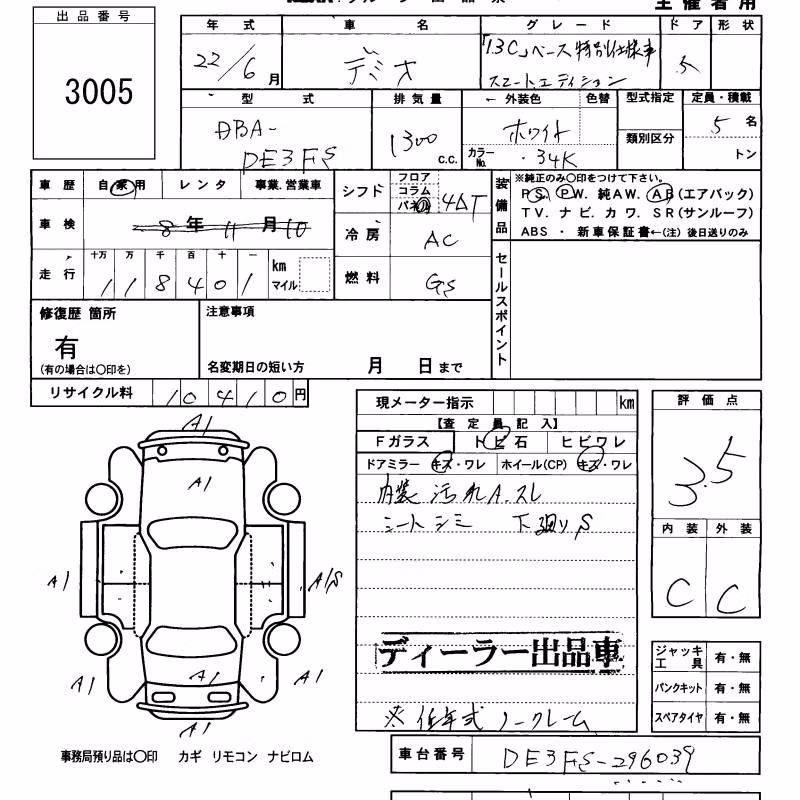 主催者用
出品番号
3005
年式 車名 グレード ドア 形状
22/6月 デミオ 「13C」ベース特別仕様車 5
スマートエディション
型式 排気量 ←外装色 色替 型式指定 定員・積載
DBA- 1300 c.c. ホワイト 5名
DE3FS カラーNo. ・34K 類別区分 トン
車歴 自家用 レンタ 事業.営業車
車検 8年11月10
走行 十万 万 千 百 十 一 km マイル
1 1 8 4 0 1
シフト フロア コラム パネル 4AT
冷房 AC
燃料 GS
装備品
※純正のみ〇印をつけて下さい。
PS. PW. 純AW. AB(エアバック)
TV. ナビ. カワ. SR(サンルーフ)
ABS ・ 新車保証書←(注) 後日送りのみ
セールスポイント
修復歴 箇所 注意事項
有
(有の場合は〇印を) 名変期日の短い方 月 日まで
リサイクル料 10410円
現メーター指示 km
【査定員記入】
Fガラス トビ石 ヒビワレ
ドアミラー キズ・ワレ ホイール(CP) キズ・ワレ
内装 汚れA.スレ
シートシミ 下廻りS
ディーラー出品車
※低年式ノークレーム
評価点
3.5
内装 外装
C C
ジャッキ工具 有・無
パンクキット 有・無
スペアタイヤ 有・無
A1
A1
A1 A1/S
A1 A1 A1
事務局預り品は〇印 カギ リモコン ナビロム
車台番号 DE3FS-296039